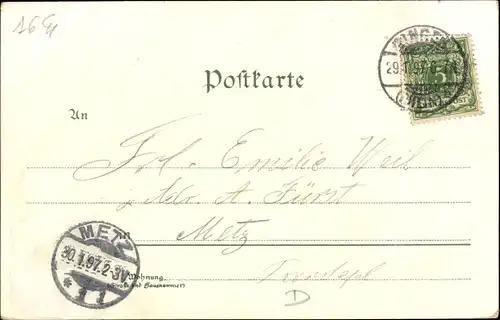 BINGEN
29.1.97.
(RHEIN)
5
Postkarte
An
Frl. Emilie Weil
Adr. A. Fürst
in Metz
METZ
30.1.97.2-3N
* 1 1
Wohnung
(Straße und Hausnummer)
D